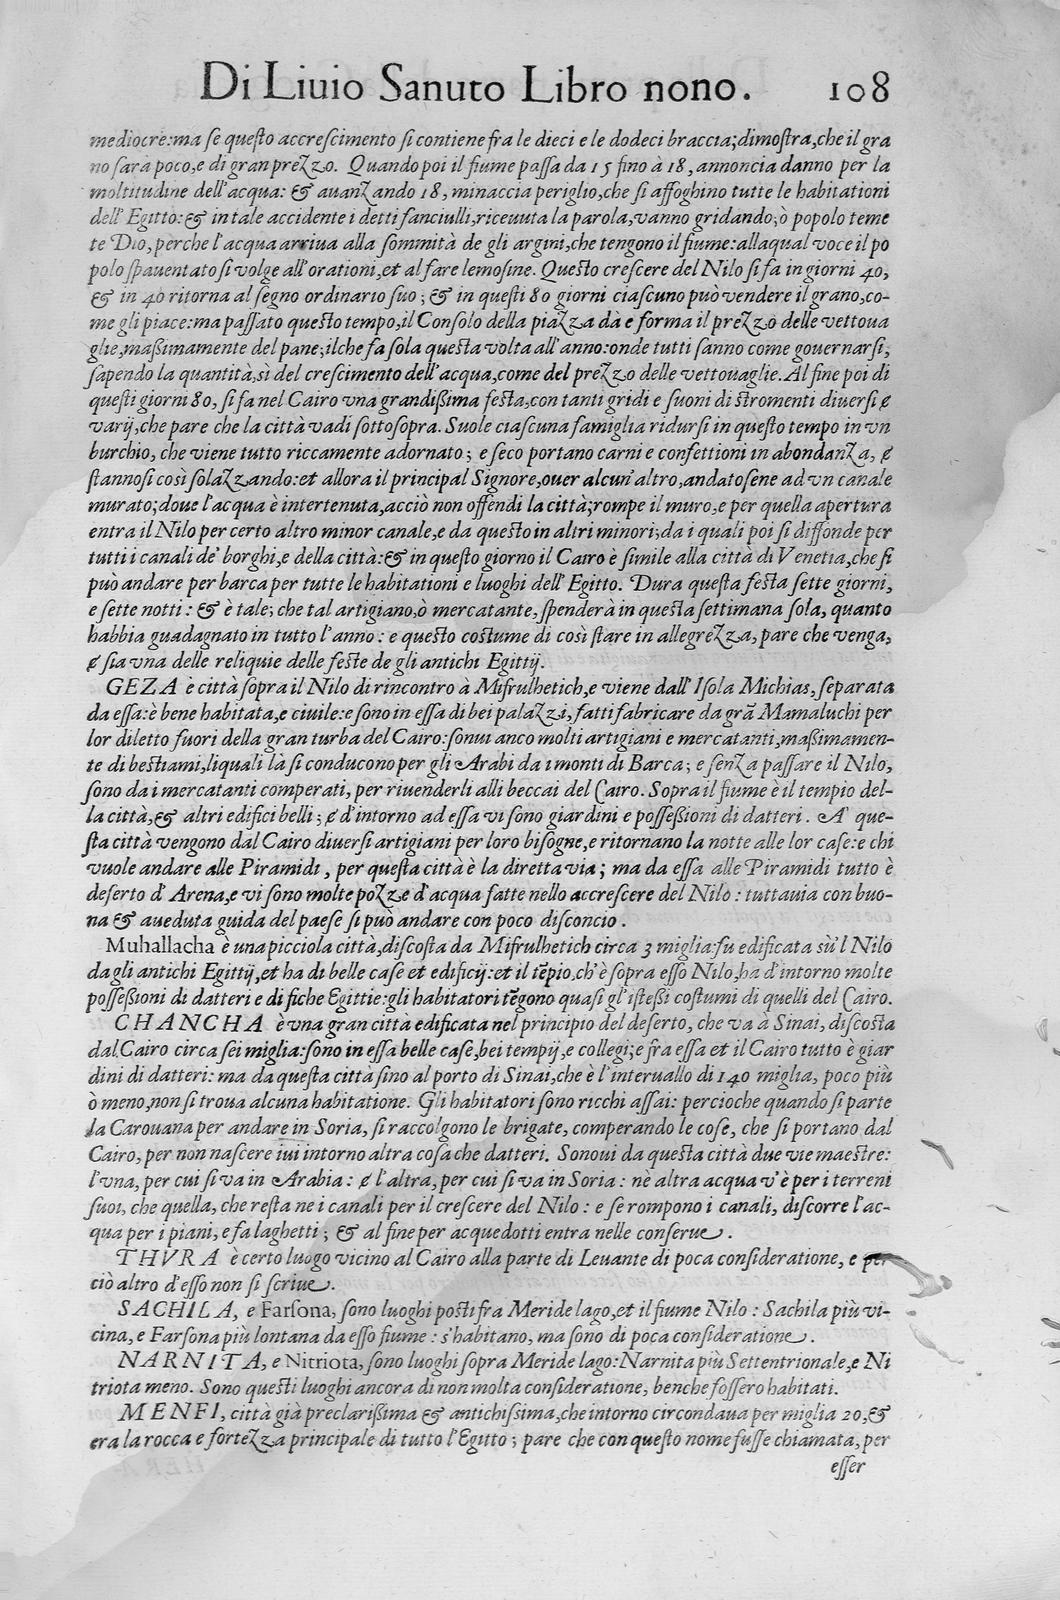 Di Liuio Sanuto Libro nono. 108
mediocre: ma se questo accrescimento si contiene fra le dieci e le dodeci braccia; dimostra, che il gra
no sarà poco, e di gran prezzo. Quando poi il fiume passa da 15 fino à 18, annoncia danno per la
moltitudine dell'acqua: & auanzando 18, minaccia periglio, che si affoghino tutte le habitationi
dell'Egitto: & in tale accidente i detti fanciulli, riceuuta la parola, vanno gridando; ò popolo teme
te Dio, perche l'acqua arriua alla sommità de gli argini, che tengono il fiume: alla qual voce il po
polo spauentato si volge all'orationi, et al fare lemosine. Questo crescere del Nilo si fa in giorni 40,
& in 40 ritorna al segno ordinario suo; & in questi 80 giorni ciascuno può vendere il grano, co-
me gli piace: ma passato questo tempo, il Consolo della piazza dà e forma il prezzo delle vettoua
glie, massimamente del pane; ilche fa sola questa volta all'anno: onde tutti sanno come gouernarsi,
sapendo la quantità, sì del crescimento dell'acqua, come del prezzo delle vettouaglie. Al fine poi di
questi giorni 80, si fa nel Cairo vna grandissima festa, con tanti gridi e suoni di stromenti diuersi &
varij, che pare che la città vadi sottosopra. Suole ciascuna famiglia ridursi in questo tempo in vn
burchio, che viene tutto riccamente adornato; e seco portano carni e confettioni in abondanza, &
stannosi così solazzando: et allora il principal Signore, ouer alcun'altro, andatosene ad vn canale
murato; doue l'acqua è intertenuta, acciò non offendi la città; rompe il muro, e per quella apertura
entra il Nilo per certo altro minor canale, e da questo in altri minori; da i quali poi si diffonde per
tutti i canali de' borghi, e della città: & in questo giorno il Cairo è simile alla città di Venetia, che si
può andare per barca per tutte le habitationi e luoghi dell'Egitto. Dura questa festa sette giorni,
e sette notti: & è tale; che tal artigiano, ò mercatante, spenderà in questa settimana sola, quanto
habbia guadagnato in tutto l'anno: e questo costume di così stare in allegrezza, pare che venga,
& sia vna delle reliquie delle feste de gli antichi Egittij.
GEZA è città sopra il Nilo di rincontro à Misrulhetich, e viene dall'Isola Michias, separata
da essa: è bene habitata, e ciuile: e sono in essa di bei palazzi, fatti fabricare da grã Mamaluchi per
lor diletto fuori della gran turba del Cairo: sonui anco molti artigiani e mercatanti, massimamen-
te di bestiami, liquali là si conducono per gli Arabi da i monti di Barca; e senza passare il Nilo,
sono da i mercatanti comperati, per riuenderli alli beccai del Cairo. Sopra il fiume è il tempio del-
la città, & altri edifici belli; & d'intorno ad essa vi sono giardini e possessioni di datteri. A que-
sta città vengono dal Cairo diuersi artigiani per loro bisogne, e ritornano la notte alle lor case: e chi
vuole andare alle Piramidi, per questa città è la diretta via; ma da essa alle Piramidi tutto è
deserto d'Arena, e vi sono molte pozze d'acqua fatte nello accrescere del Nilo: tuttauia con buo-
na & aueduta guida del paese si può andare con poco disconcio.
Muhallacha è una picciola città, discosta da Misrulhetich circa 3 miglia: fu edificata sù'l Nilo
dagli antichi Egittij, et ha di belle case et edificij: et il tẽpio, ch'è sopra esso Nilo, ha d'intorno molte
possessioni di datteri e di fiche Egittie: gli habitatori tẽgono quasi gl'istessi costumi di quelli del Cairo.
CHANCHA è vna gran città edificata nel principio del deserto, che va à Sinai, discosta
dal Cairo circa sei miglia: sono in essa belle case, bei tempij, e collegi; e fra essa et il Cairo tutto è giar
dini di datteri: ma da questa città fino al porto di Sinai, che è l'interuallo di 140 miglia, poco più
ò meno, non si troua alcuna habitatione. Gli habitatori sono ricchi assai: percioche quando si parte
la Carouana per andare in Soria, si raccolgono le brigate, comperando le cose, che si portano dal
Cairo, per non nascere iui intorno altra cosa che datteri. Sonoui da questa città due vie maestre:
l'vna, per cui si va in Arabia: & l'altra, per cui si va in Soria: nè altra acqua v'è per i terreni
suoi, che quella, che resta ne i canali per il crescere del Nilo: e se rompono i canali, discorre l'ac-
qua per i piani, e fa laghetti; & al fine per acquedotti entra nelle conserue.
THVRA è certo luogo vicino al Cairo alla parte di Leuante di poca consideratione, e per
ciò altro d'esso non si scriue.
SACHILA, e Farsona, sono luoghi posti fra Meride lago, et il fiume Nilo: Sachila più vi-
cina, e Farsona più lontana da esso fiume: s'habitano, ma sono di poca consideratione.
NARNITA, e Nitriota, sono luoghi sopra Meride lago: Narnita più Settentrionale, e Ni
triota meno. Sono questi luoghi ancora di non molta consideratione, benche fossero habitati.
MENFI, città già preclarissima & antichissima, che intorno circondaua per miglia 20, &
era la rocca e fortezza principale di tutto l'Egitto; pare che con questo nome fusse chiamata, per
esser